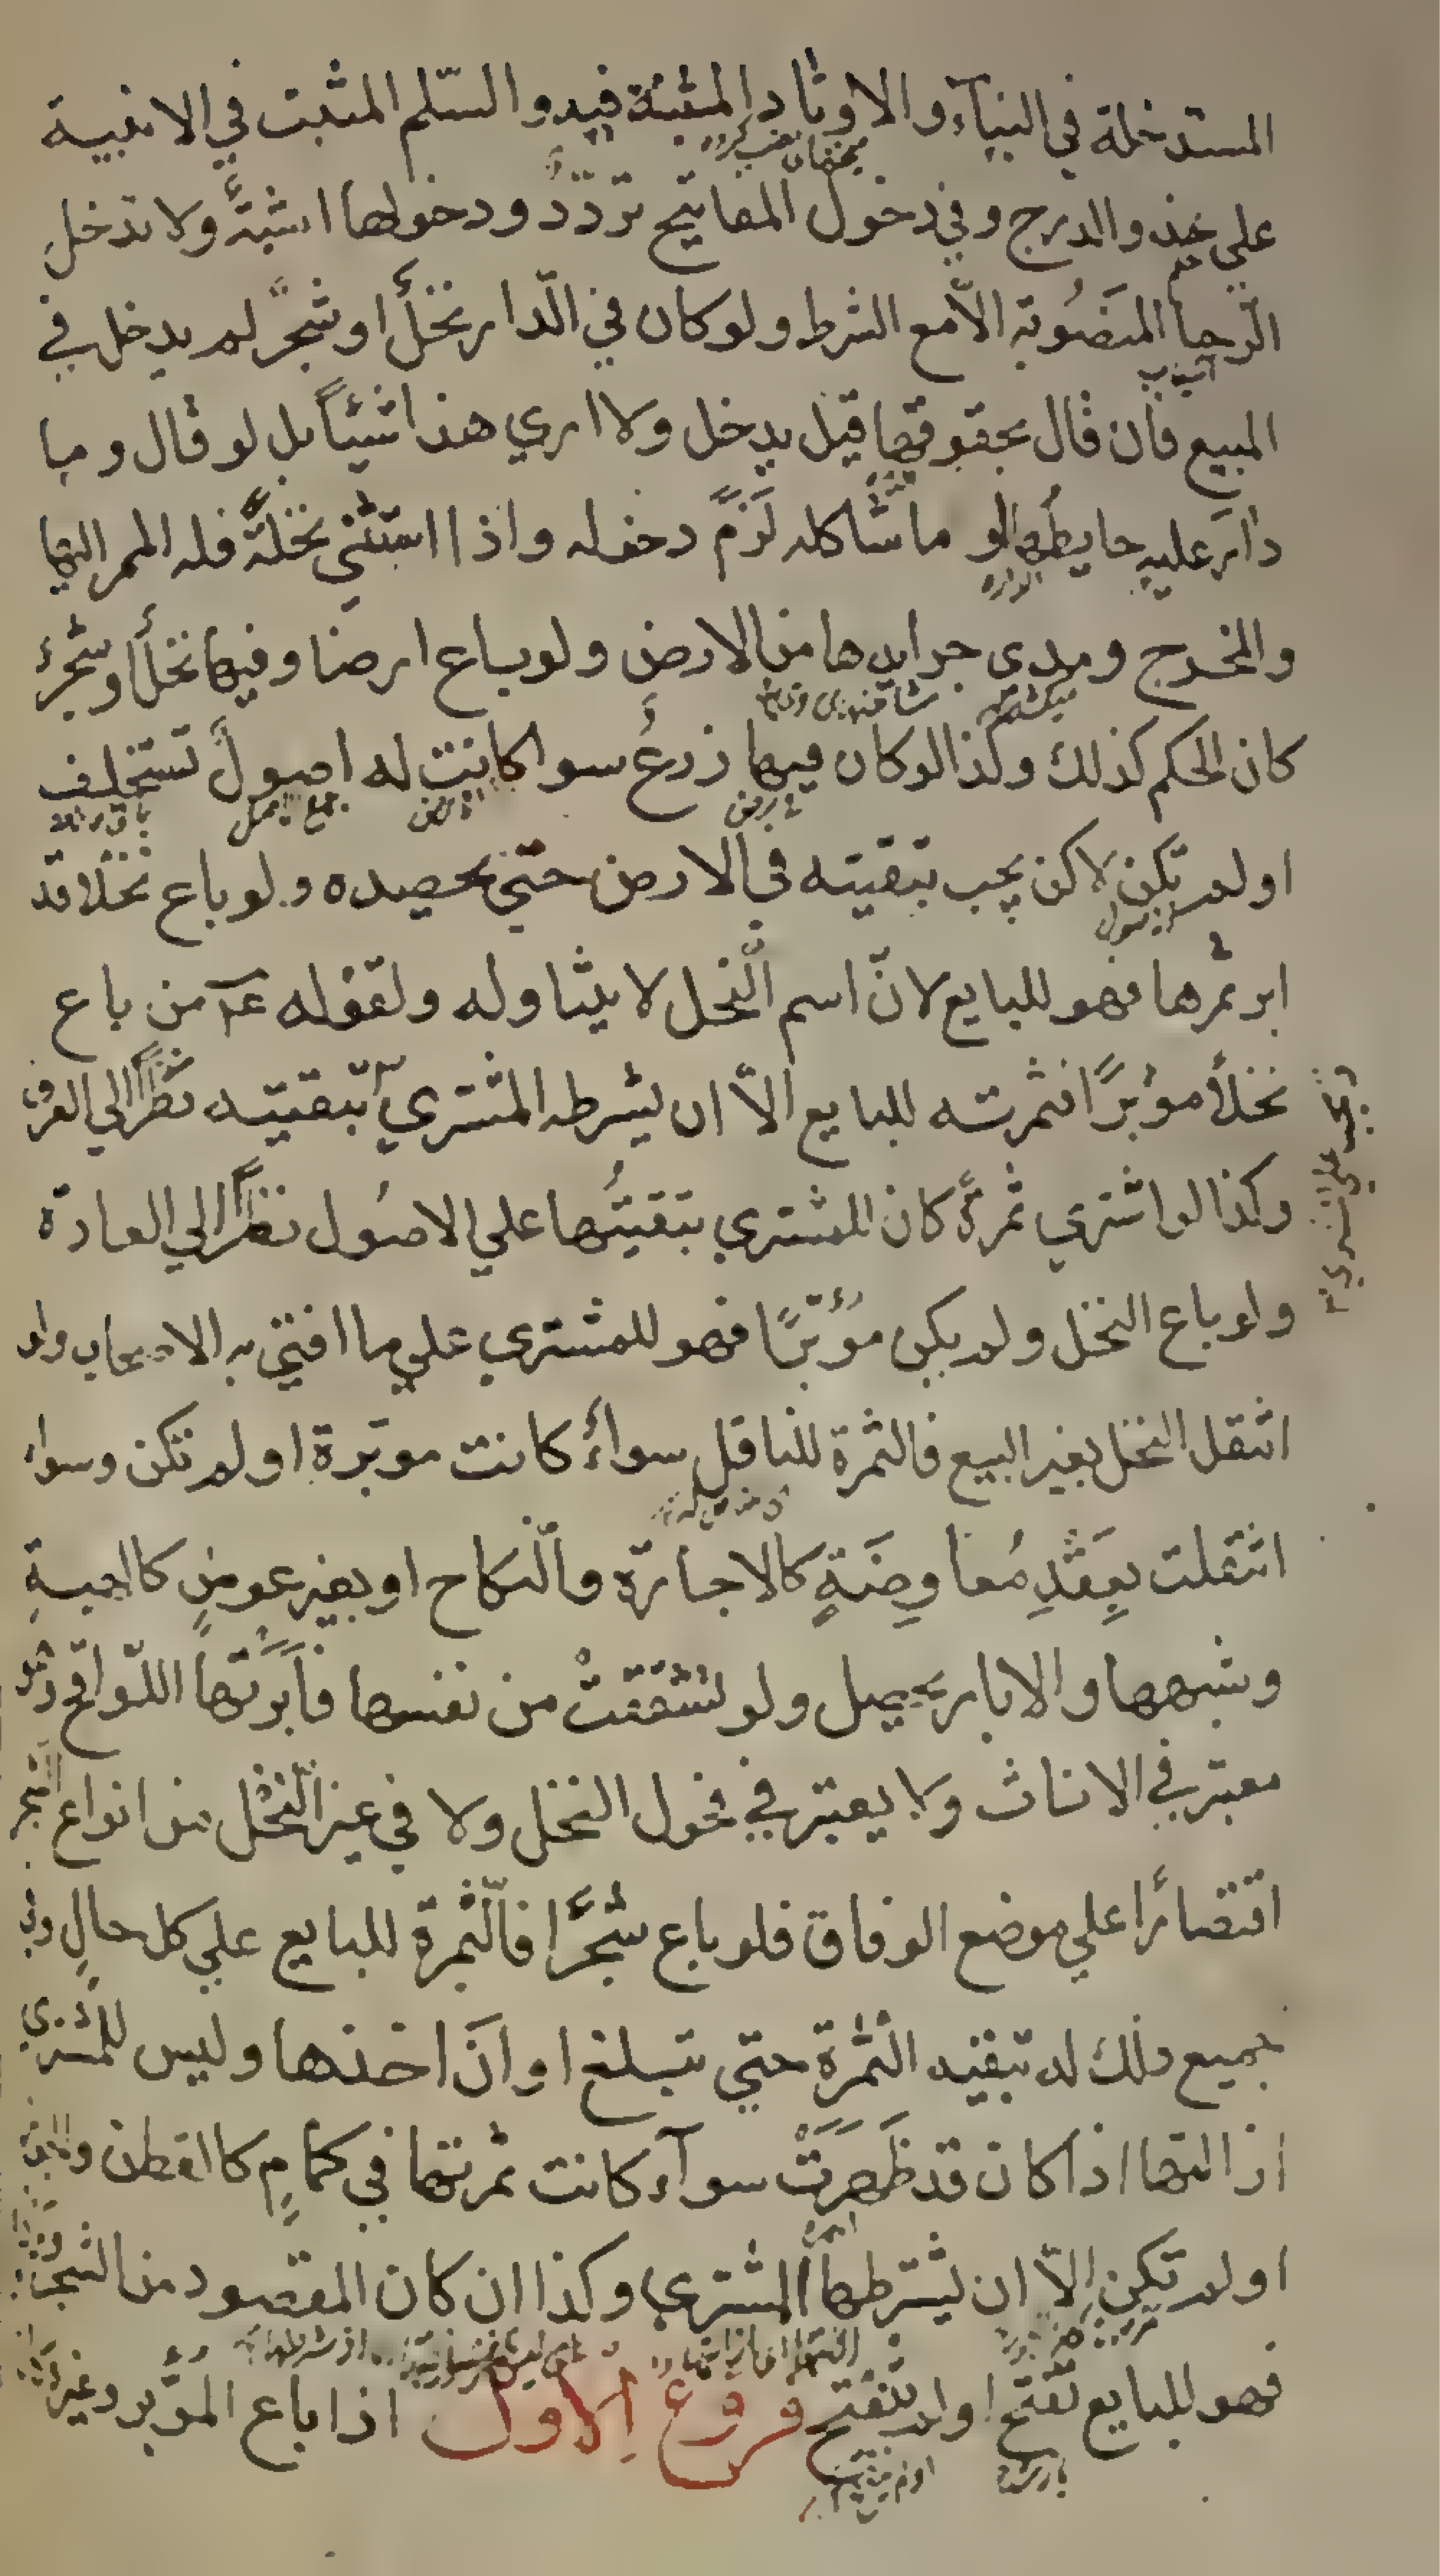 المستدخلة في البناء والاوتاد المثبتة فيه والسّلم المثبت في الابنية
علي حذو الدرج وفي دخول المفاتيح تردّد ودخولها اشبه ولا تدخل
الرحا المنصُوبة الاّ مع الشرط ولو كان في الدّار نخلٌ او شجرٌ لم يدخل في
المبيع فان قال بحقوقها قيل يدخل ولا اري هذا شيئًا بل لو قال وما
دار عليه حايطها او ما شاكله لزم دخوله واذا استثني نخلةً فله الممر اليها
والمخرج ومدي جرايدها من الارض ولو باع ارضا وفيها نخلٌ او شجرٌ
كان الحكم كذلك وكذا لو كان فيها زرعٌ سوا كانت له اصولٌ تستخلف
او لم تكن لاكن يجب تبقيته في الارض حتّي يحصده ولو باع نخلًا قد
ابر ثمرها فهو للبايع لانّ اسم النّخل لا يتناوله ولقوله عم من باع
نخلًا مؤبرًا فثمرته للبايع الاّ ان يشرطه المشتري تبقيته نظرًا الي العرف
وكذا لو اشتري ثمرةً كان للمشتري تبقيتُها علي الاصُول نظرًا الي العادة
ولو باع النخل ولم يكن مؤبّرًا فهو للمشتري علي ما افتي به الاصحاب ولو
انتقل النخل بغير البيع فالثمرة للناقل سواءٌ كانت موبّرة او لم تكن وسواء
انتقلت بعقدِ مُعاوضَةٍ كالاجارة والنّكاح او بغير عوضٍ كالهبةِ
وشبهها والابار يحصل ولو تشققتْ من نفسها فأبرَتها اللّواقح وهو
معتبر في الاناث ولا يعتبر في فحول النخل ولا في غير النّخل من انواع الشجر
اقتصارًا علي موضع الوفاق فلو باع شجرًا فالثّمرة للبايع علي كل حالٍ وفي
جميع ذلك له تبقيه الثمرة حتي تبلغ اوانَ اخذها وليس للمشتري
ازالتها اذا كان قد ظَهرَتْ سوآء كانت ثمرتها في كمامٍ كالقطن والجوز
او لم تكن إلاّ ان يشترطها المشتري وكذا ان كان المقصود من الشجر
فهو للبايع تفتح او لم يتفتح فروع الأول اذا باع المؤبر وغيره